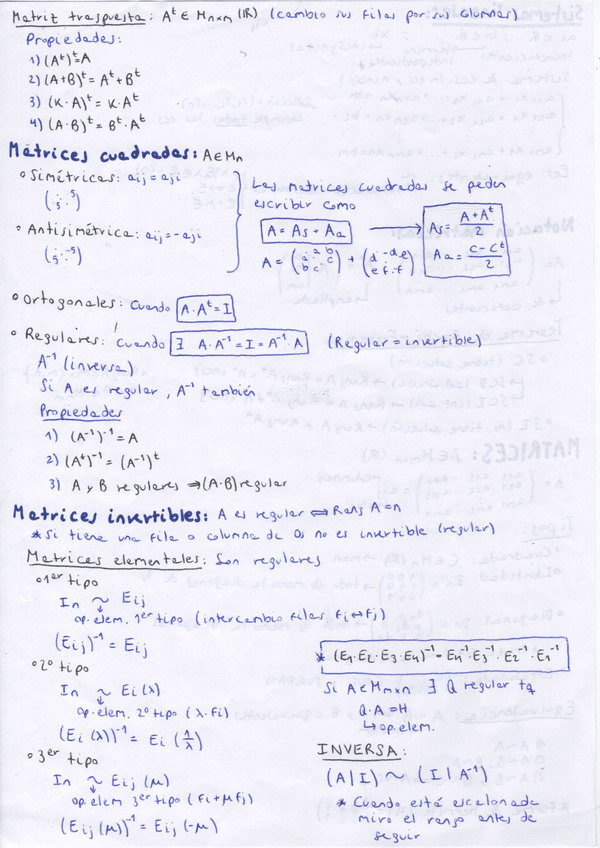 Matriz traspuesta: Aᵗ ∈ Mnxm (ℝ) (cambio sus filas por sus columnas)
Propiedades:
1) (Aᵗ)ᵗ = A
2) (A+B)ᵗ = Aᵗ + Bᵗ
3) (K·A)ᵗ = K·Aᵗ
4) (A·B)ᵗ = Bᵗ·Aᵗ
Matrices cuadradas: A ∈ Mn
° Simétricas: aij = aji
( ⋱ 5 ; 5 ⋱ )
° Antisimétrica: aij = -aji
( ⋱ -5 ; 5 ⋱ )
Las matrices cuadradas se peden
escribir como
A = As + Aa → As = (A + Aᵗ)/2
Aa = (C - Cᵗ)/2
A = (· a b ; a · c ; b c ·) + (· -d -e ; d · -f ; e f ·)
° Ortogonales: Cuando A·Aᵗ = I
° Regulares: Cuando ∃ A·A⁻¹ = I = A⁻¹·A (Regular = invertible)
A⁻¹ (inversa)
Si A es regular, A⁻¹ también
Propiedades
1) (A⁻¹)⁻¹ = A
2) (Aᵗ)⁻¹ = (A⁻¹)ᵗ
3) A y B regulares ⇒ (A·B) regular
Matrices invertibles: A es regular ⇔ Rang A = n
* Si tiene una fila o columna de 0s no es invertible (regular)
Matrices elementales: Son regulares
° 1er tipo
In ~ Eij
op. elem. 1er tipo (intercambio filas fi ↔ fj)
(Eij)⁻¹ = Eij
° 2º tipo
In ~ Ei (λ)
op. elem. 2º tipo (λ·fi)
(Ei (λ))⁻¹ = Ei (1/λ)
° 3er tipo
In ~ Eij (μ)
op. elem 3er tipo (fi + μfj)
(Eij (μ))⁻¹ = Eij (-μ)
* (E1·E2·E3·E4)⁻¹ = E4⁻¹·E3⁻¹·E2⁻¹·E1⁻¹
Si A ∈ Mmxn ∃ Q regular tq
Q·A = H
↳ op. elem.
INVERSA:
(A | I) ~ (I | A⁻¹)
* Cuando está escalonada
miro el rango antes de
seguir